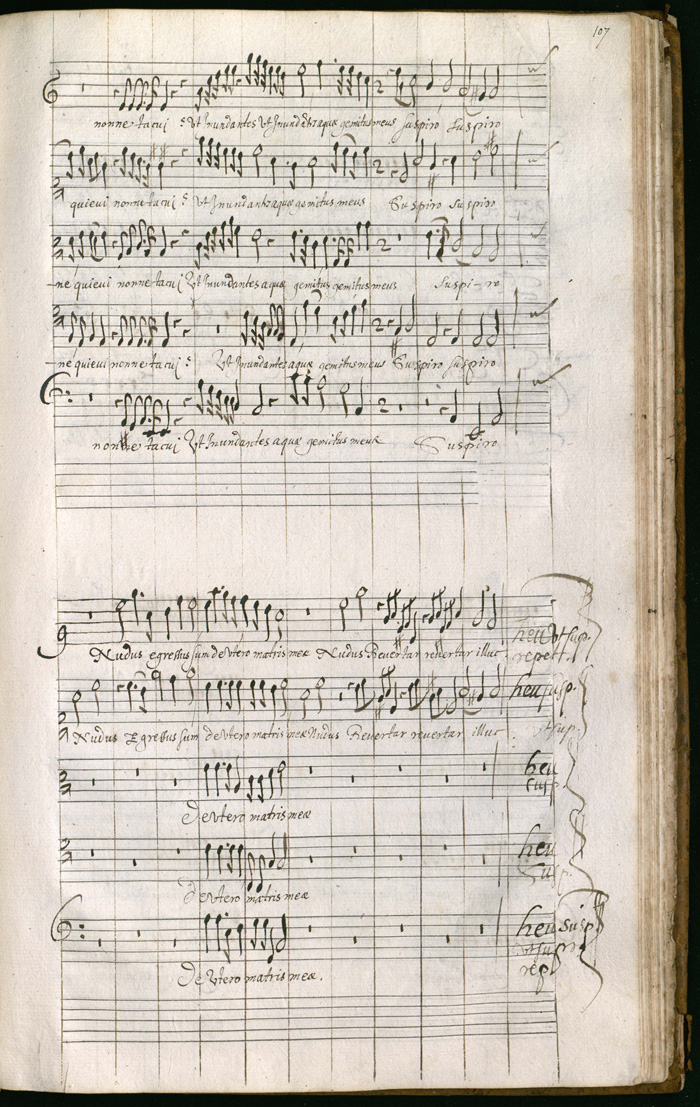 107
nonne tacui Ut Inundantes Ut Inundantes aquæ gemitus meus suspiro suspiro
quieui nonne tacui Ut Inundantes aquæ gemitus meus Suspiro suspiro
-ne quieui nonne tacui Ut Inundantes aquæ gemitus gemitus meus suspi-ro
-ne quieui nonne tacui Ut Inundantes aquæ gemitus meus Suspiro suspiro
nonne tacui Ut Inundantes aquæ gemitus meus Suspiro
Nudus egressus sum de Utero matris meæ Nudus Revertar revertar illuc heu Ut sup.
repet.
Nudus Egressus sum de Utero matris meæ Nudus Revertar revertar illuc heu susp.
Ut sup.
de Utero matris meæ heu
susp.
de Utero matris meæ heu
susp.
de Utero matris meæ. heu susp.
Ut sup
rep.